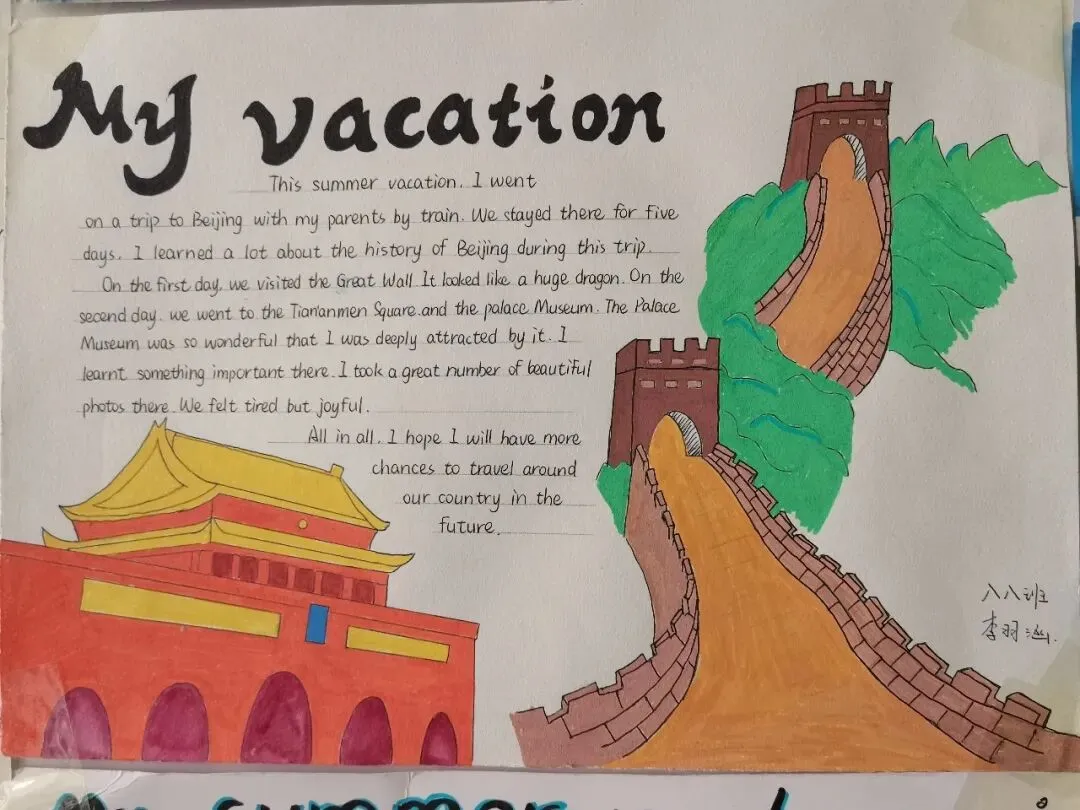 My vacation
This summer vacation. I went
on a trip to Beijing with my parents by train. We stayed there for five
days. I learned a lot about the history of Beijing during this trip.
On the first day, we visited the Great Wall. It looked like a huge dragon. On the
second day. we went to the Tian'anmen Square.and the palace Museum. The Palace
Museum was so wonderful that I was deeply attracted by it. I
learnt something important there. I took a great number of beautiful
photos there. We felt tired but joyful.
All in all, I hope I will have more
chances to travel around
our country in the
future.
八八班
李羽涵
summer